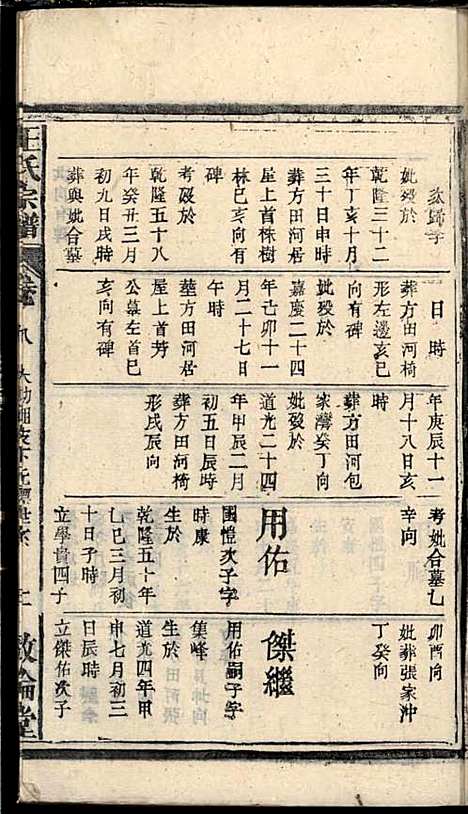 歸子
妣歿於
乾隆三十二
年丁亥十月
三十日申時
葬方田河居
屋上首株樹
林巳亥向有
碑
考歿於
乾隆五十八
年癸丑三月
初九日戌時
葬與妣合墓
日時
葬方田河椅
形左邊亥巳
向有碑
妣歿於
嘉慶二十四
年己卯十一
月二十七日
午時
葬方田河居
屋上首芳
公墓左首巳
亥向有碑
年庚辰十一
月十八日亥
時
葬方田河包
家灣癸丁向
妣歿於
道光二十四
年甲辰二月
初五日辰時
葬方田河椅
形戌辰向
考妣合墓乙
辛向
用佑
國愷次子字
時康
生於
乾隆五十年
乙巳三月初
十日子時
立學貴四子
卯酉向
妣葬張家沖
丁癸向
傑繼
用佑嗣子字
集峰
生於
道光四年甲
申七月初三
日辰時
立傑佑次子
氏宗譜
敦倫堂